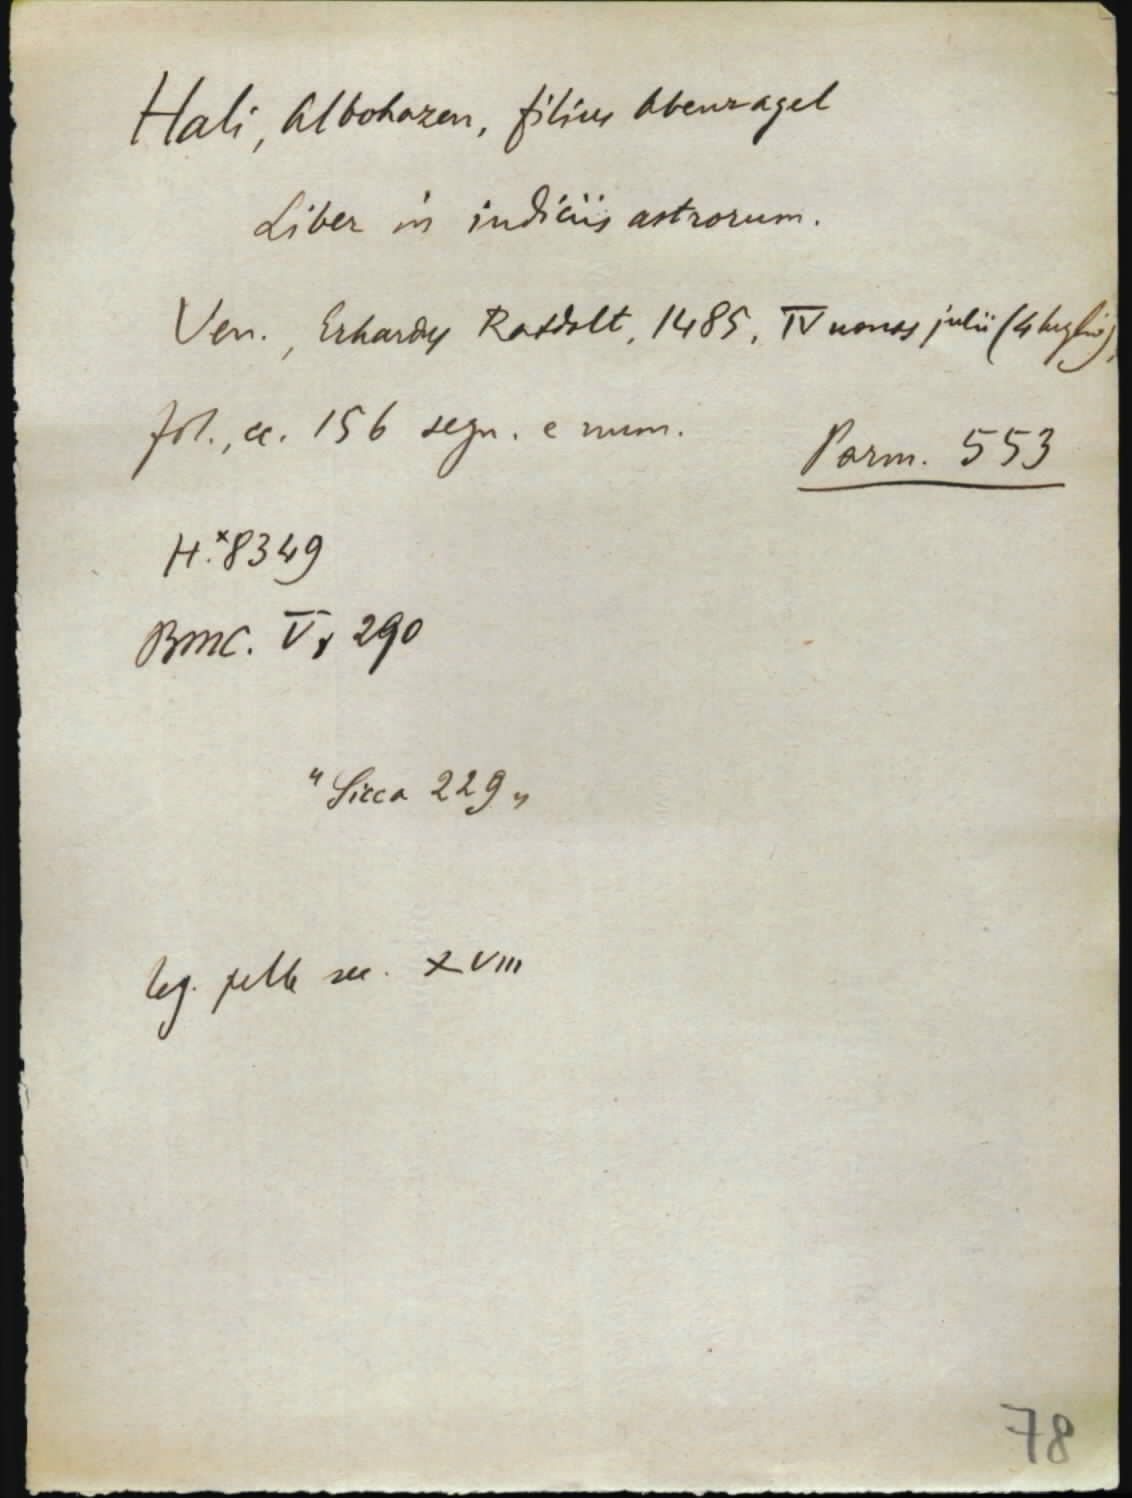 Hali, Albohazen, filius Abenragel
Liber in iudiciis astrorum.
Ven., Erhardus Ratdolt, 1485, IV nonas julii (4 luglio),
fol., cc. 156 segn. e num.
Parm. 553
H.*8349
BMC. V, 290
"Sicca 229"
leg. pelle sec. XVIII
78